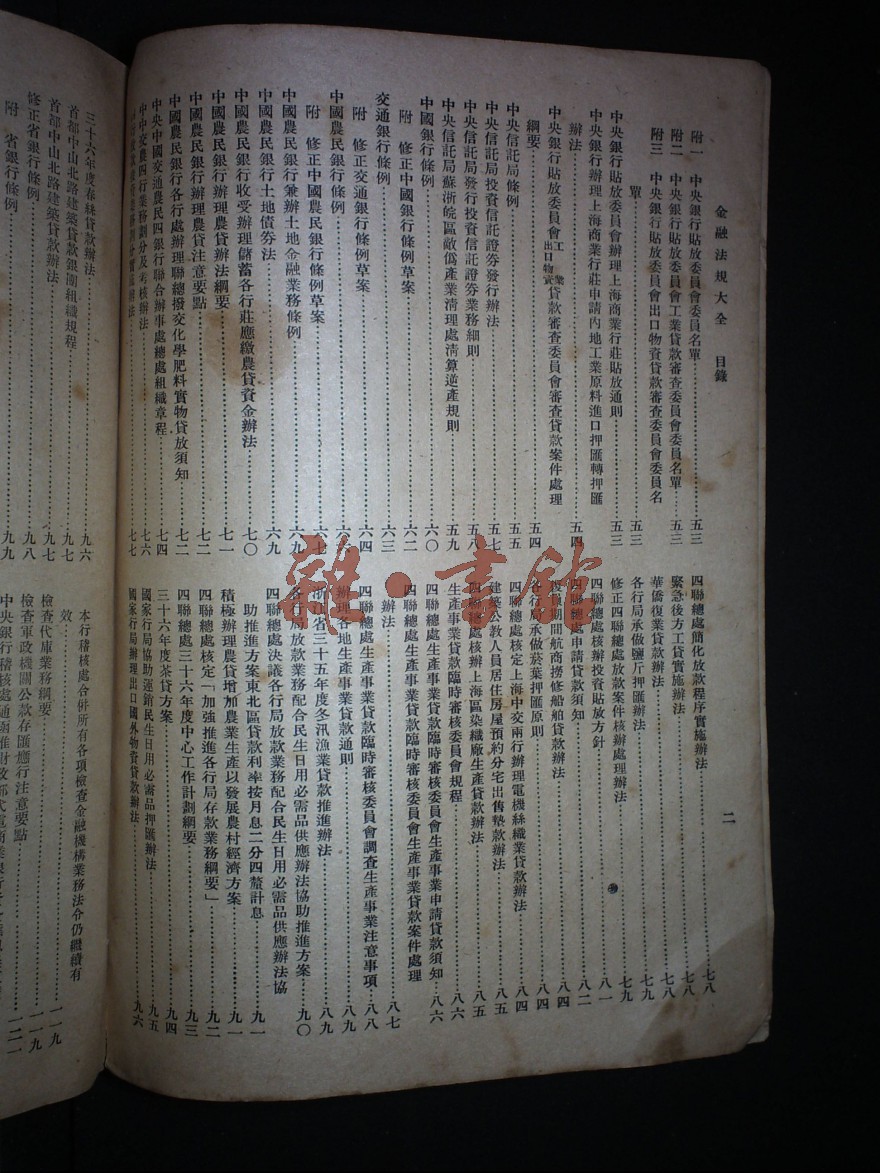 金融法規大全　目錄
二
附一　中央銀行貼放委員會委員名單……五三
附二　中央銀行貼放委員會工業貸款審查委員會委員名單……五三
附三　中央銀行貼放委員會出口物資貸款審查委員會委員名
單……五三
中央銀行貼放委員會辦理上海商業行莊貼放通則……五三
中央銀行辦理上海商業行莊申請內地工業原料進口押匯轉押匯
辦法……五四
中央銀行貼放委員會工業出口物資貸款審查委員會審查貸款案件處理
綱要……五四
中央信託局條例……五五
中央信託局投資信託證券發行辦法……五七
中央信託局發行投資信託證券業務細則……五八
中央信託局蘇浙皖區敵僞產業清理處清算逆產規則……五九
中國銀行條例……六〇
附　修正中國銀行條例草案……六二
交通銀行條例……六三
附　修正交通銀行條例草案……六四
中國農民銀行條例……六
附　修正中國農民銀行條例草案……六七
中國農民銀行兼辦土地金融業務條例……六九
中國農民銀行土地債券法……六九
中國農民銀行收受辦理儲蓄各行莊應繳農貸資金辦法……七〇
中國農民銀行辦理農貸辦法綱要……七一
中國農民銀行辦理農貸注意要點……七二
中國農民銀行各行處辦理聯總撥交化學肥料實物貸放須知……七二
中央中國交通農民四銀行聯合辦事處總處組織章程……七四
中中交農四行業務劃分及考核辦法……七六
辦法……七七
四聯總處簡化放款程序實施辦法……七八
緊急後方工貸實施辦法……七八
華僑復業貸款辦法……七八
各行局承做鹽斤押匯辦法……七九
修正四聯總處放款案件核辦處理辦法……七九
四聯總處核辦投資貼放方針……八一
四聯總處申請貸款須知……八二
復員期間航商撈修船舶貸款辦法……八四
各行局承做菸葉押匯原則……八四
四聯總處核定上海中交兩行辦理電機絲織業貸款辦法……八四
建築公教人員居住房屋預約分宅出售墊款辦法……八五
四聯總處核辦上海區染織廠生產貸款辦法……八五
生產事業貸款臨時審核委員會規程……八六
四聯總處生產事業貸款臨時審核委員會生產事業申請貸款須知……八六
四聯總處生產事業貸款臨時審核委員會生產事業貸款案件處理
辦法……八七
四聯總處生產事業貸款臨時審核委員會調查生產事業注意事項……八八
辦理各地生產事業貸款通則……八九
浙江省三十五年度冬汛漁業貸款推進辦法……八九
各行局放款業務配合民生日用必需品供應辦法協助推進方案……九〇
四聯總處決議各行局放款業務配合民生日用必需品供應辦法協
助推進方案東北區貸款利率按月息二分四釐計息……九一
積極辦理農貸增加農業生產以發展農村經濟方案……九一
四聯總處核定「加強推進各行局存款業務綱要」……九二
四聯總處三十六年度中心工作計劃綱要……九三
三十六年度茶貸方案……九四
國家行局協助運銷民生日用必需品押匯辦法……九五
國家行局辦理出口國外物資貸款辦法……九六
三十六年度春絲貸款辦法……九六
首都中山北路建築貸款銀團組織規程……九七
首都中山北路建築貸款辦法……九七
修正省銀行條例……九八
附　省銀行條例……九九
本行稽核處合併所有各項檢查金融機構業務法令仍繼續有
效……一一九
檢查代庫業務綱要……一一九
檢查軍政機關公款存匯應行注意要點……一一九